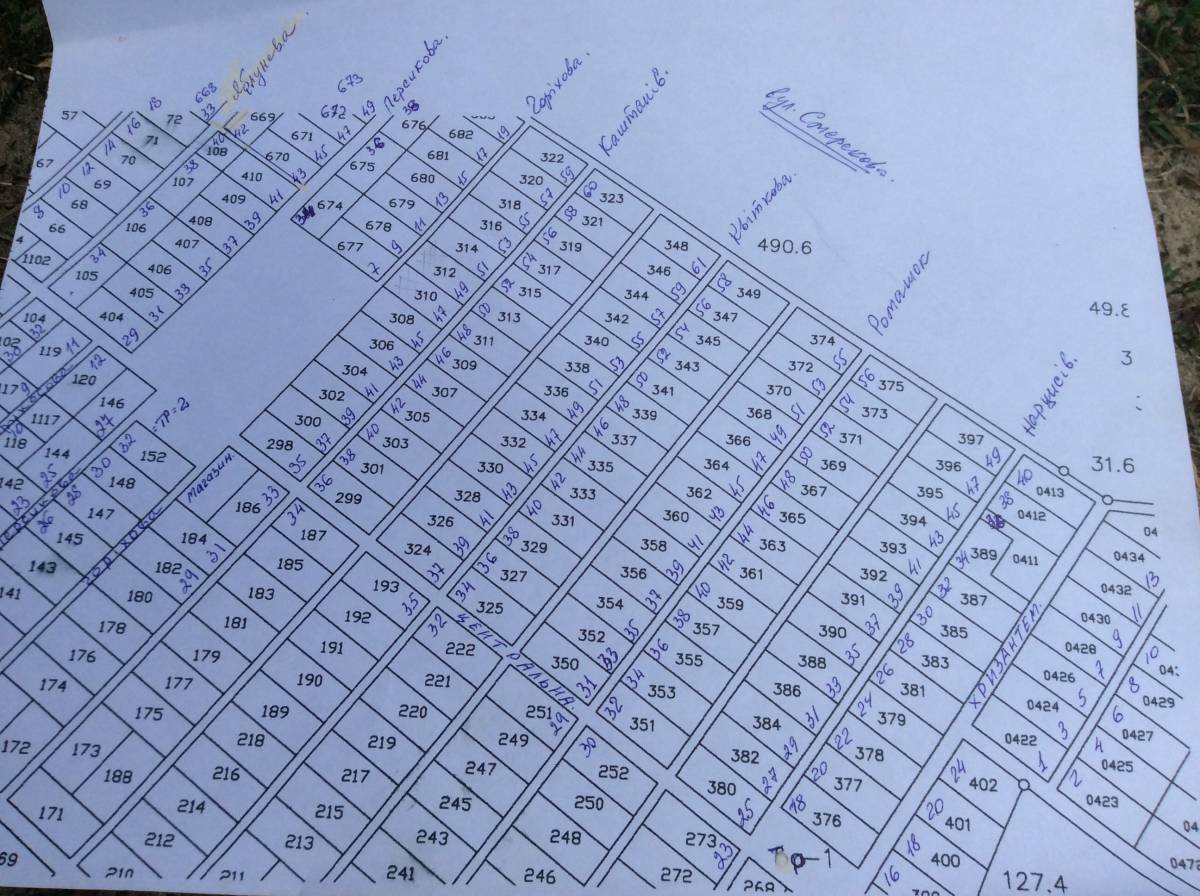 Персикова.
Горіхова.
Каштанів.
вул. Смерекова.
Квіткова.
Ромашок
Нарцисів.
490.6
49.8
3
31.6
127.4
57 72 668 33 669 673
16 18 71 40 42 671 672 47 49 38
67 12 14 70 38 108 670 45 36 676 682 19
8 10 69 107 410 43 675 681 17
68 36 409 41 674 680 15
66 106 408 39 34 679 13
1102 34 407 37 678 11
105 406 35 677 9
405 33 7
104 404 31
29
322 59 60 323
320 57 58 321
318 55 56 319
316 53 54 317
314 51 52 315
312 49 50 313
310 47 48 311
308 45 46 309
306 43 44 307
304 41 42 305
302 39 40 303
300 37 38 301
298 35 36 299
348 61 58 349
346 59 56 347
344 57 54 345
342 55 52 343
340 53 50 341
338 51 48 339
336 49 46 337
334 47 44 335
332 45 42 333
330 43 40 331
328 41 38 329
326 39 36 327
324 37 34 325
374 55 56 375
372 53 54 373
370 51 52 371
368 49 50 369
366 47 48 367
364 45 46 365
362 43 44 363
360 41 42 361
358 39 40 359
356 37 38 357
354 35 36 355
352 33 34 353
350 31 32 351
397 49 40 0413
396 47 38 0412
395 45 36 0411
394 43 34 389
393 41 32 387
392 39 30 385
391 37 28 383
390 35 26 381
388 33 24 379
386 31 22 378
384 29 20 377
382 27 18 376
380 25
ХРИЗАНТЕМ.
0434
0432 13
0430 11
0428 9 10
0426 7 8 0429
0424 5 6 0427
0422 3 4 0425
1 2 0423
24 402
20 401
18 400
16
ЦЕНТРАЛЬНА
магазин.
горіхова
ТР=2
119 11
120 12
146 27
1117
118
144 25
142 23
32 152
30 148
28 147
26 145
143
141
186 33 34 187
184 31 185
182 29 183
180 181
178 179
176 177
174 175
172 173
188
171
193 35 32 222
192 221
191 220
190 219
189 217
218 215
216 213
214
212
210
211
251 29 30 252
249 250
247 248
245 246
243
241
273 23
272
268
Тр-1
0472